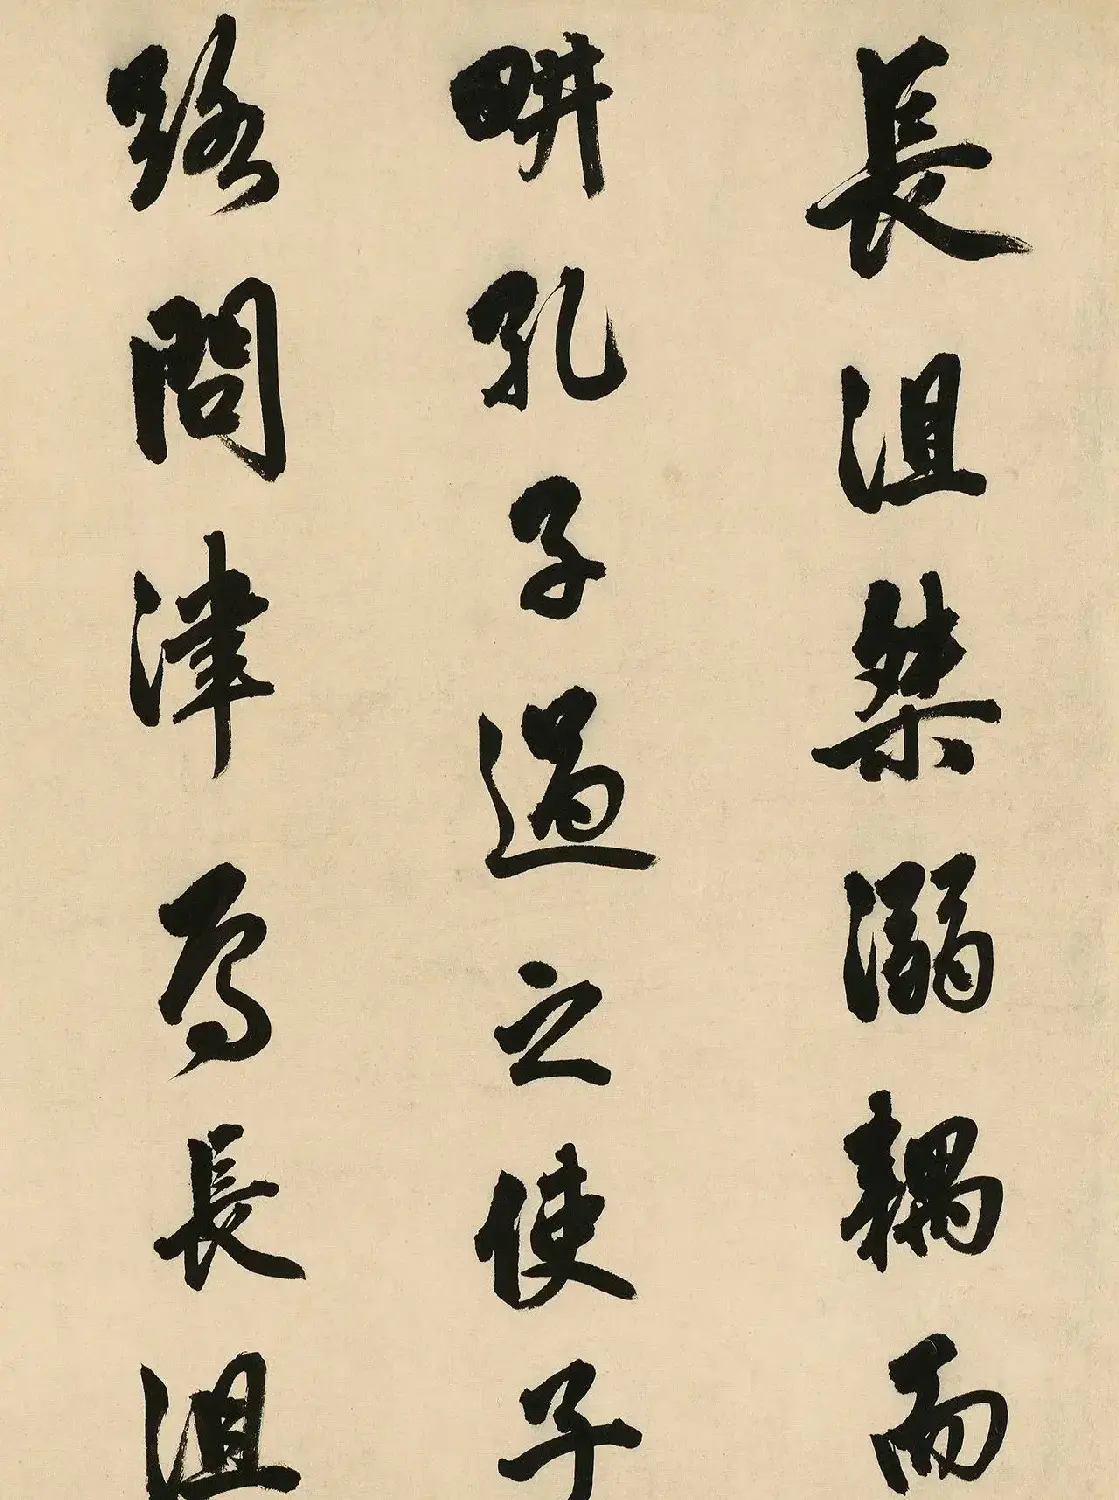 長沮桀溺耦而
畊孔子過之使子
路問津焉長沮